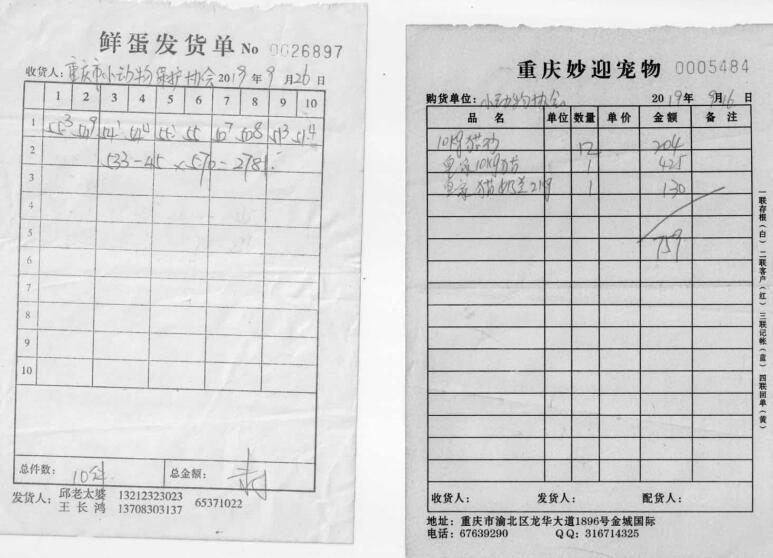 鲜蛋发货单 No 0026897
收货人：重庆市小动物保护协会 2019年9月26日
1 2 3 4 5 6 7 8 9 10
1
2 533-45×570=2781
3
4
5
6
7
8
9
10
总件数：10件 总金额：
发货人：邱老太婆 13212323023 65371022
王长鸿 13708303137
重庆妙迎宠物 0005484
购货单位：小动物协会 2019年9月16日
品名 单位 数量 单价 金额 备注
10Kg猫砂 12 204
皇家10Kg 1 425
皇家猫奶羔2Kg 1 130
759
一联存根（白）二联客户（红）三联记帐（蓝）四联回单（黄）
收货人： 发货人： 配货人：
地址：重庆市渝北区龙华大道1896号金城国际
电话：67639290 QQ：316714325